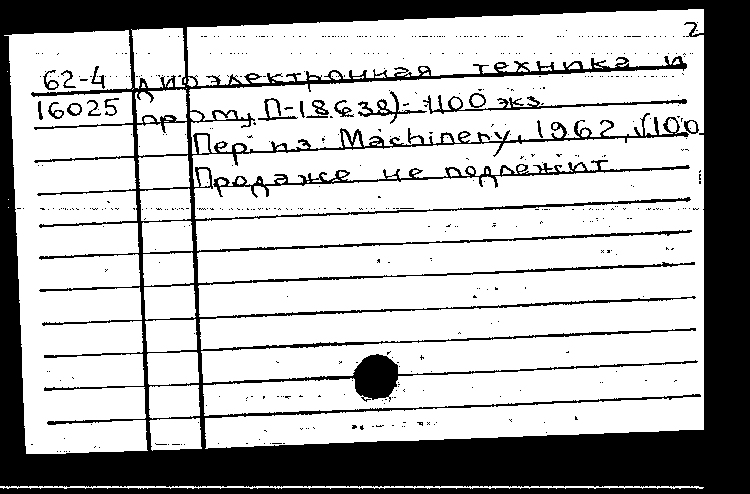 2
62-4 диоэлектронная техника и
16025 пр-ому, П-18638)- 1100 экз
Пер. из: Machinery, 1962, v.100
Продаже не подлежит